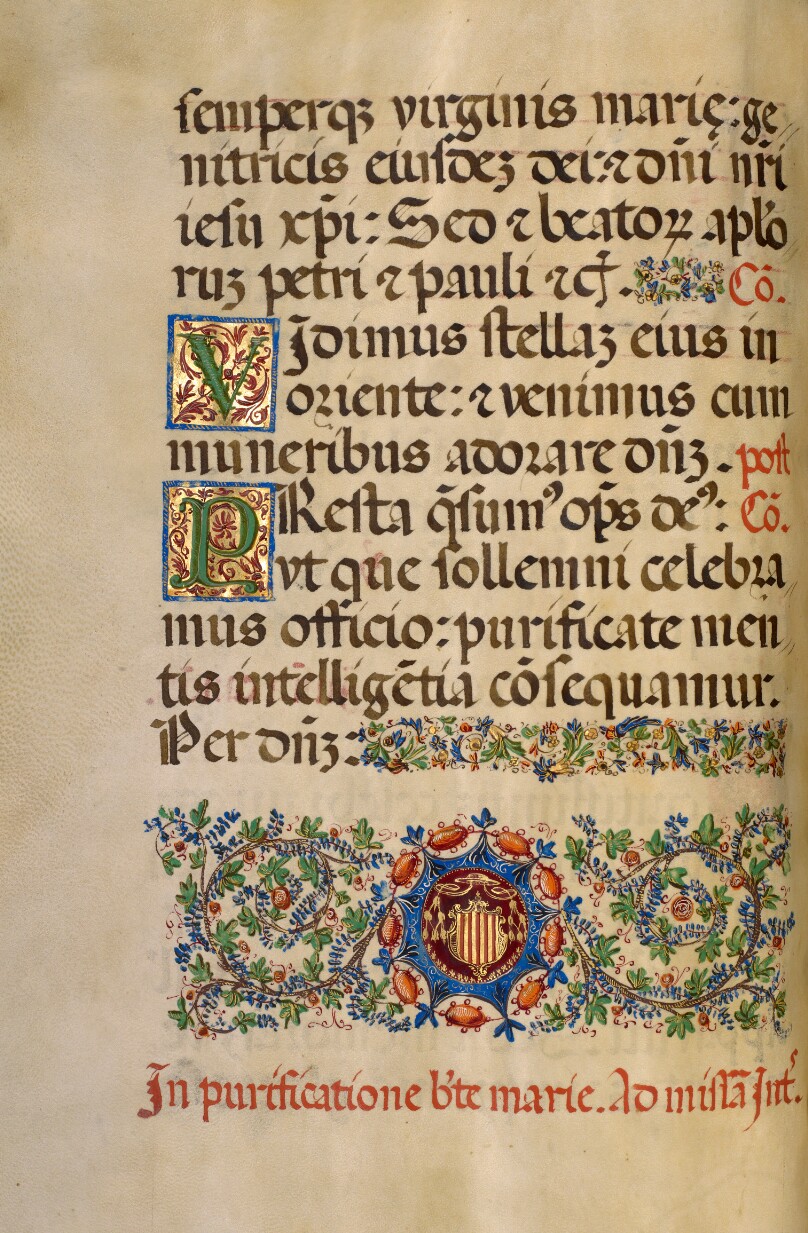 semperqꝫ virginis marię: ge„
nitricis eiusdeꝫ dei: ⁊ dn̄i nr̄i
iesu xp̄i: Sed ⁊ beatoꝝ aplo
ruꝫ petri ⁊ pauli ⁊cͭ. Cō.
VIdimus stellaꝫ eius in
oriente: ⁊ venimus cum
muneribus adorare dn̄ꝫ. post
PResta q̄sumꝰ op̄s deꝰ: Cō.
vt que sollemni celebra„
mus officio: purificate men„
tis intelligētia cōsequamur.
Per dn̄ꝫ:
In purificatione b'te marie. Ad missā Intˢ.